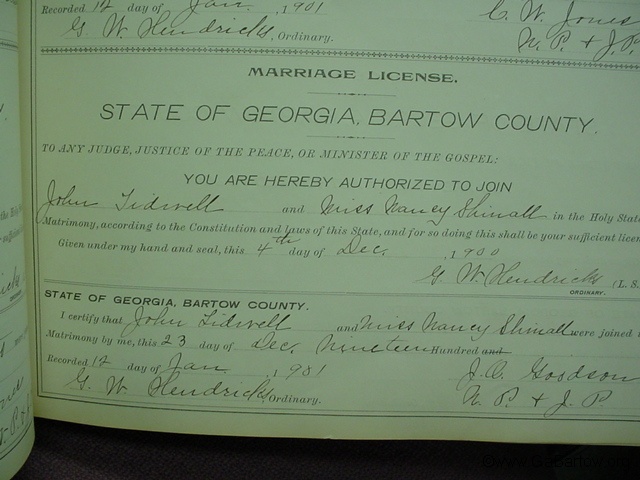 Recorded 12 day of Jan. , 1901 C. W. Jones
G. W. Hendricks, Ordinary. N. P. & J. P.
MARRIAGE LICENSE.
STATE OF GEORGIA, BARTOW COUNTY.
TO ANY JUDGE, JUSTICE OF THE PEACE, OR MINISTER OF THE GOSPEL:
YOU ARE HEREBY AUTHORIZED TO JOIN
John Tidwell and Miss Nancy Shinall in the Holy State
Matrimony, according to the Constitution and laws of this State, and for so doing this shall be your sufficient licen
Given under my hand and seal, this 4th day of Dec. , 1900
G. W. Hendricks (L. S.
ORDINARY.
STATE OF GEORGIA, BARTOW COUNTY.
I certify that John Tidwell and Miss Nancy Shinall were joined i
Matrimony by me, this 23 day of Dec. Nineteen Hundred and
Recorded 12 day of Jan , 1901 J. A. Goodson
G. W. Hendricks, Ordinary. N. P. & J. P.